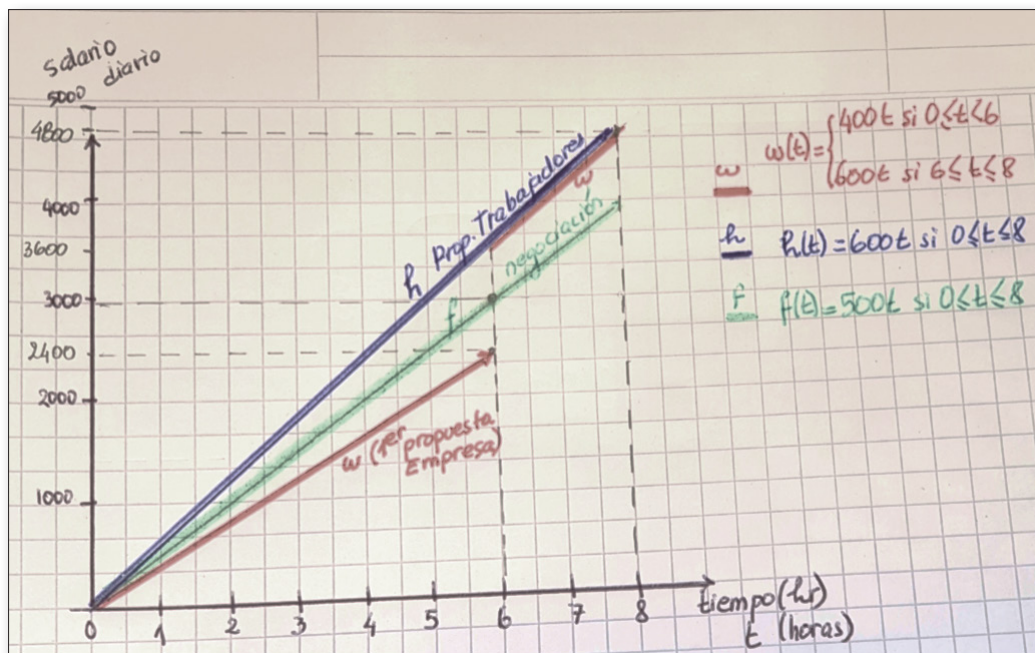 salario
diario
5000
4800
4000
3600
3000
2400
2000
1000
0 1 2 3 4 5 6 7 8
tiempo (hr)
t (horas)
h Prop. Trabajadores
w
f negociación
w (1er propuesta
Empresa)
w w(t)={400t si 0≤t<6
600t si 6≤t≤8
h h(t)=600t si 0≤t≤8
f f(t)=500t si 0≤t≤8